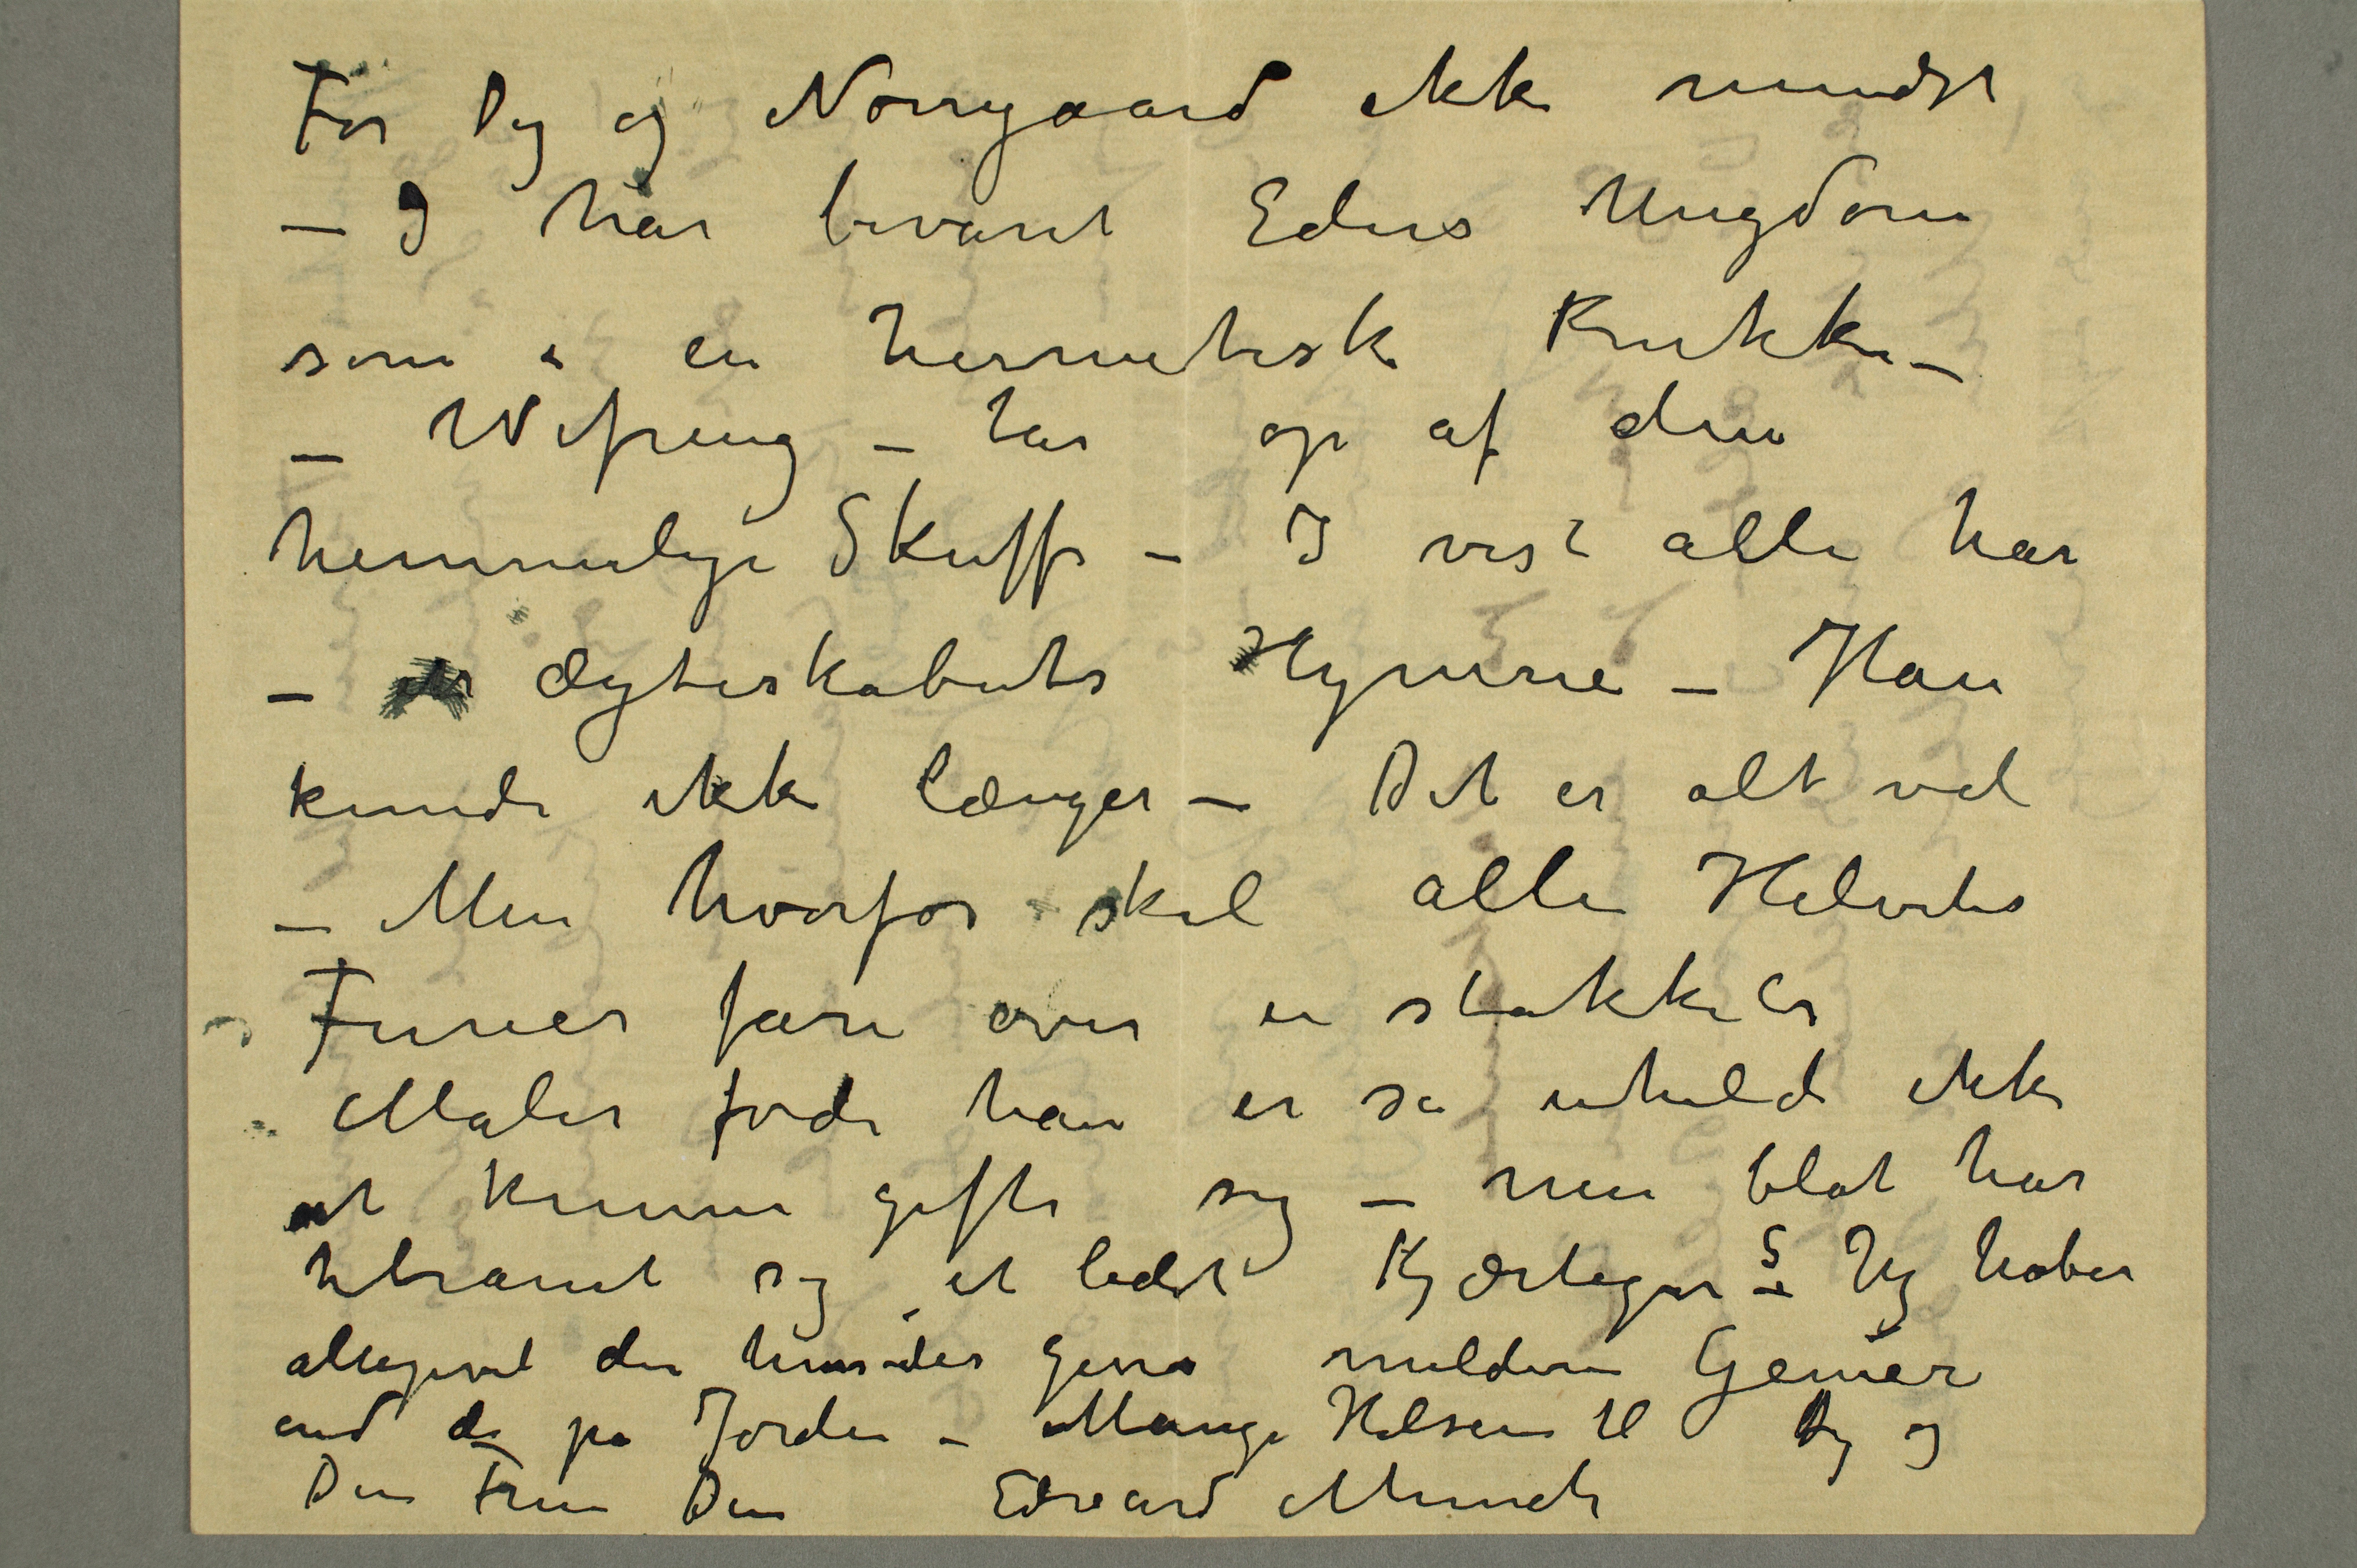 For Dig og Nørregaard ikke mindst
– I har bevaret Eders Ungdom
som i en hermetisk Krukke –
– Wefring – tar op af den
hemmelige Skuffe – I vist alle har
– ægteskabets Hymne – Han
kunde ikke længer – Det er alt vel
– Men hvorfor skal alle Helvetes
Furier fare over en stakkels
Maler fordi han er så uheldi ikke
at kunne gifte sig – men blot har
tebranet sig et lidet Kjærtegn – Jeg håber
alligevel der hinsides gives mildere Genier
end de på Jorden – Mange Hilsener til Dig og
Din Frue Din Edvard Munch